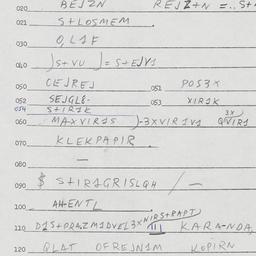 020 BEJZN REJZ+N =..S+
021 S+LOSMEM.
030 O,L1F
040 )S+VU )=S+EJV1
050 CEJREJ 051 POS3X
052 SEJGLE- 053 XIR1K
054 S+IR1K
060 MAXVIR1S )-3XVIR1V1 3X) QVIR1
070 KLEKPAPIR.
080 —
090 $ S+IR1GRISLQH /—
100 AHENTL
110 D1S+PRAZM1DVEL3X NIRS+RAPT) III KARANDA,
120 QLAT OFREJN1M KOPIRN